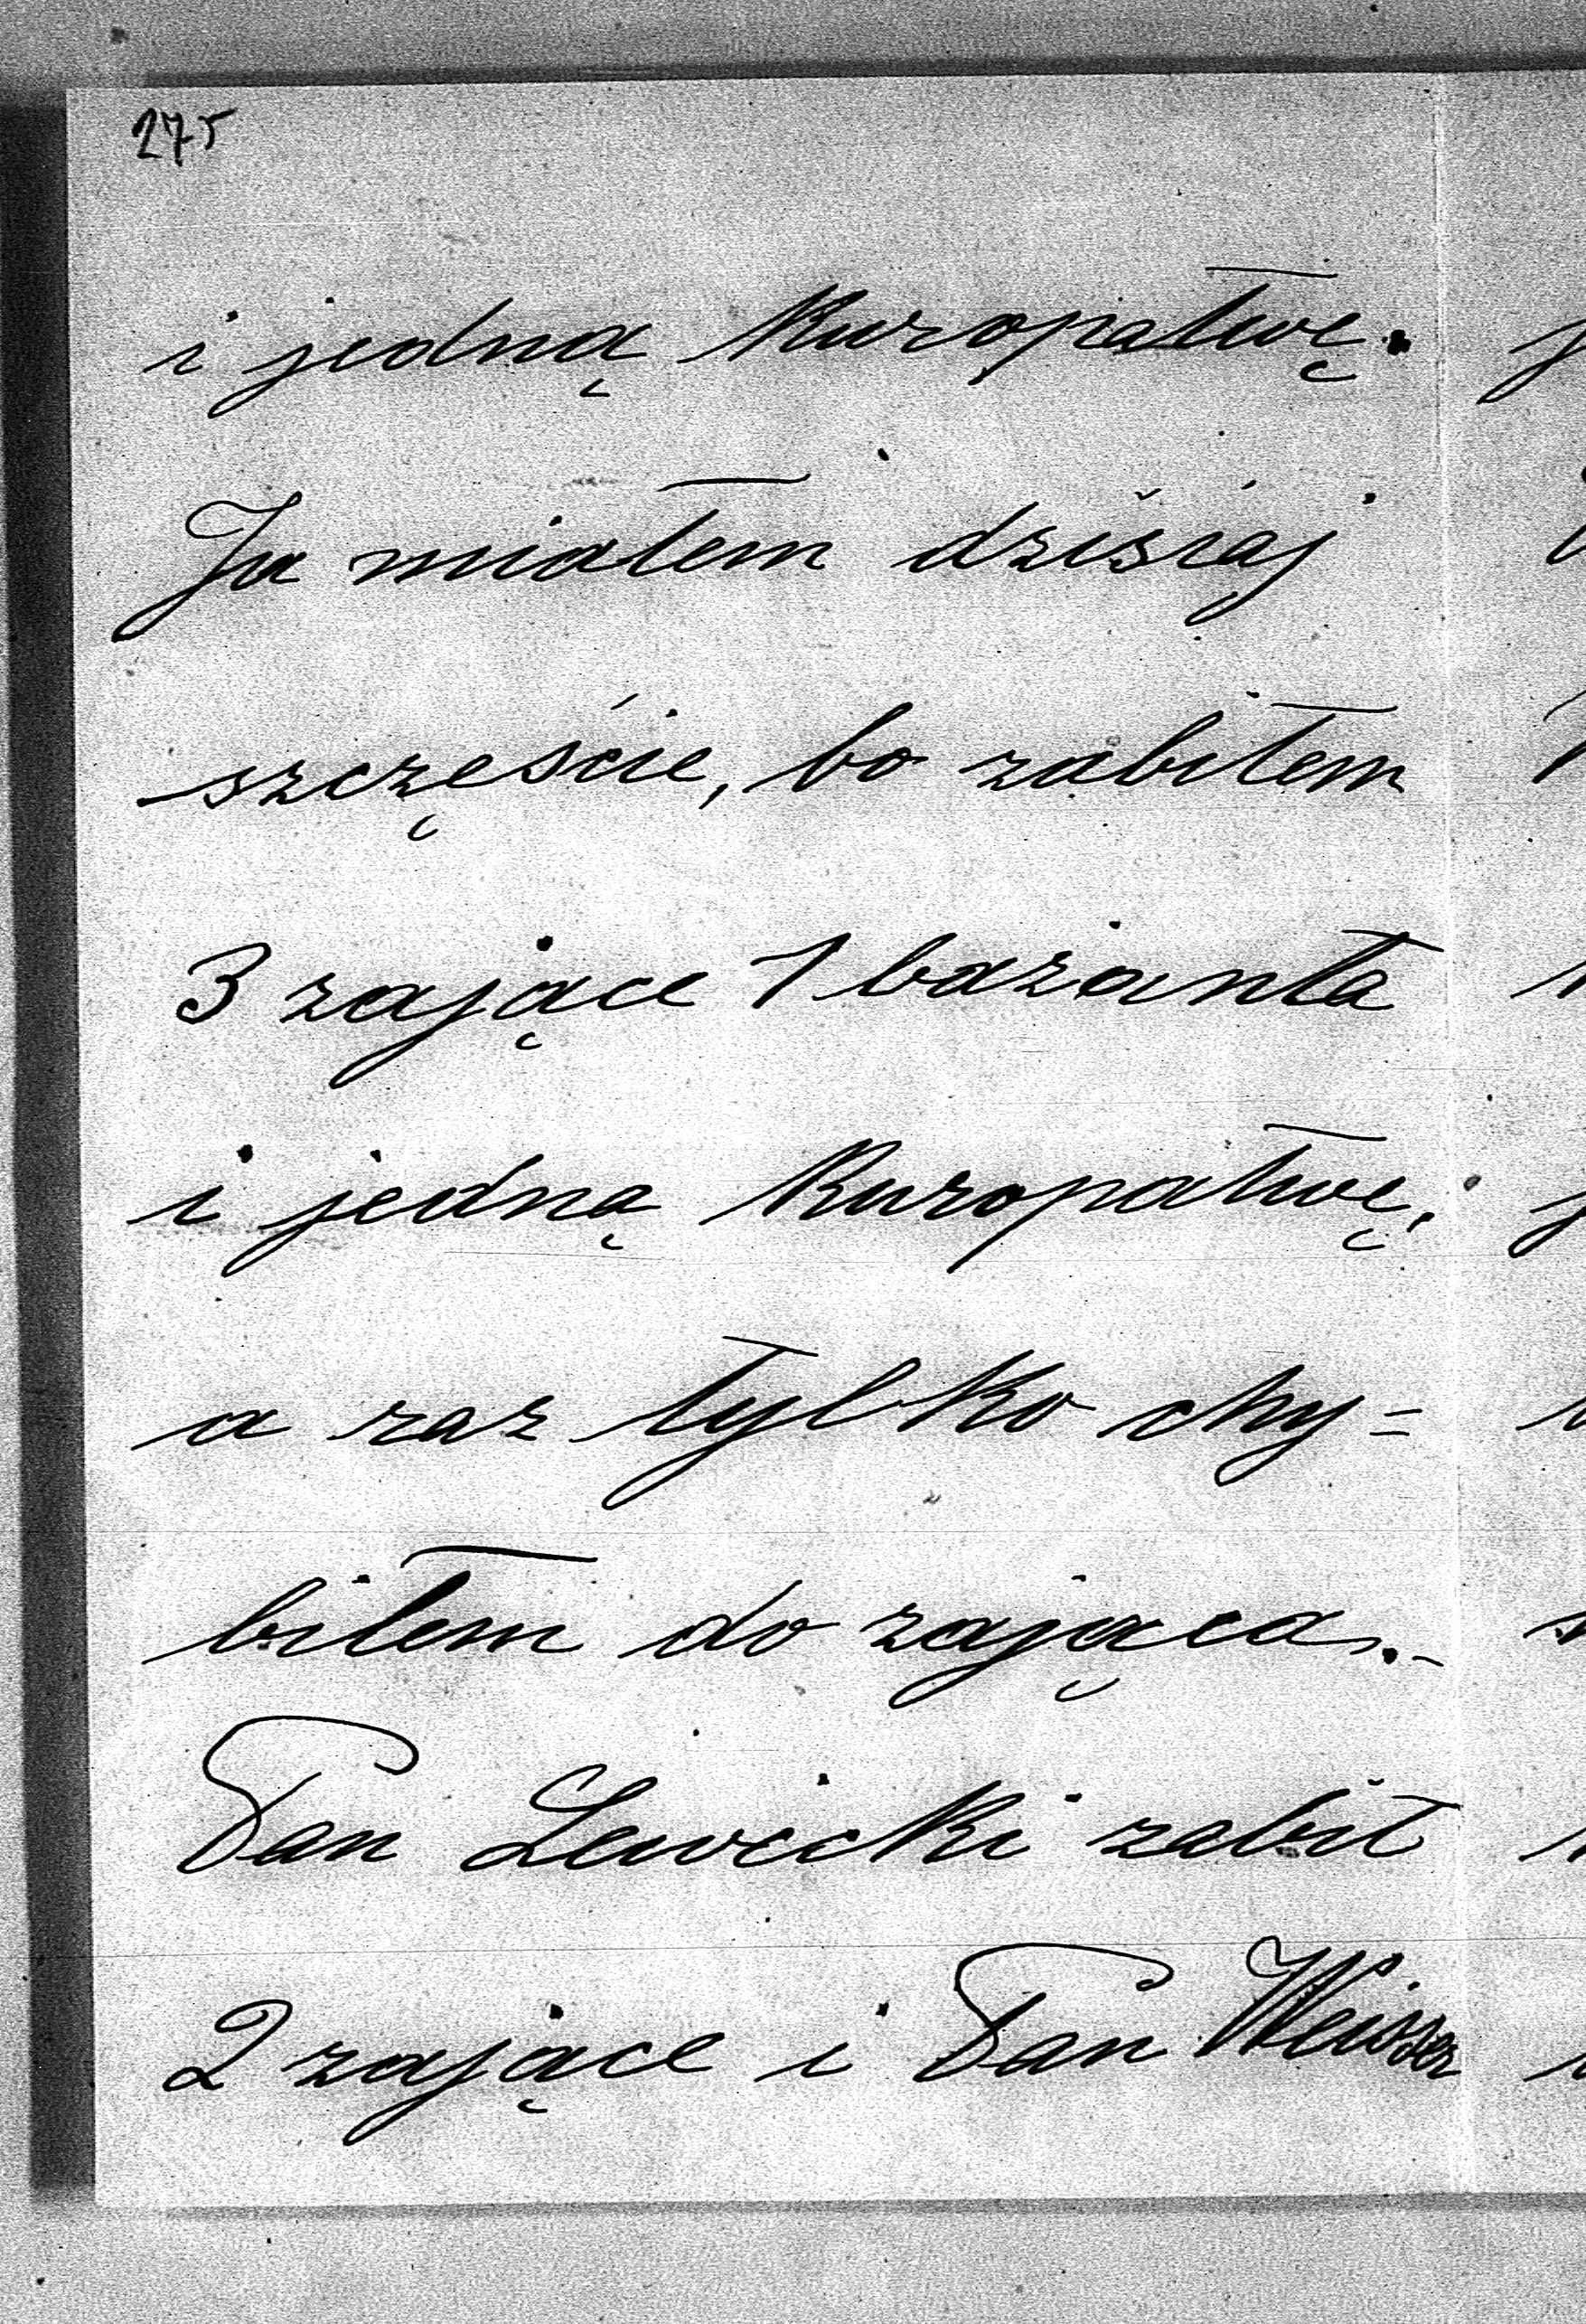 275
i jedną kuropatwę.
Ja miałem dzisiaj
szczęście, bo zabiłem
3 zające 1 bażanta
i jedną kuropatwę,
a raz tylko chy=
biłem do zająca.-
Pan Lewicki zabił
2 zające i Pan Weisser